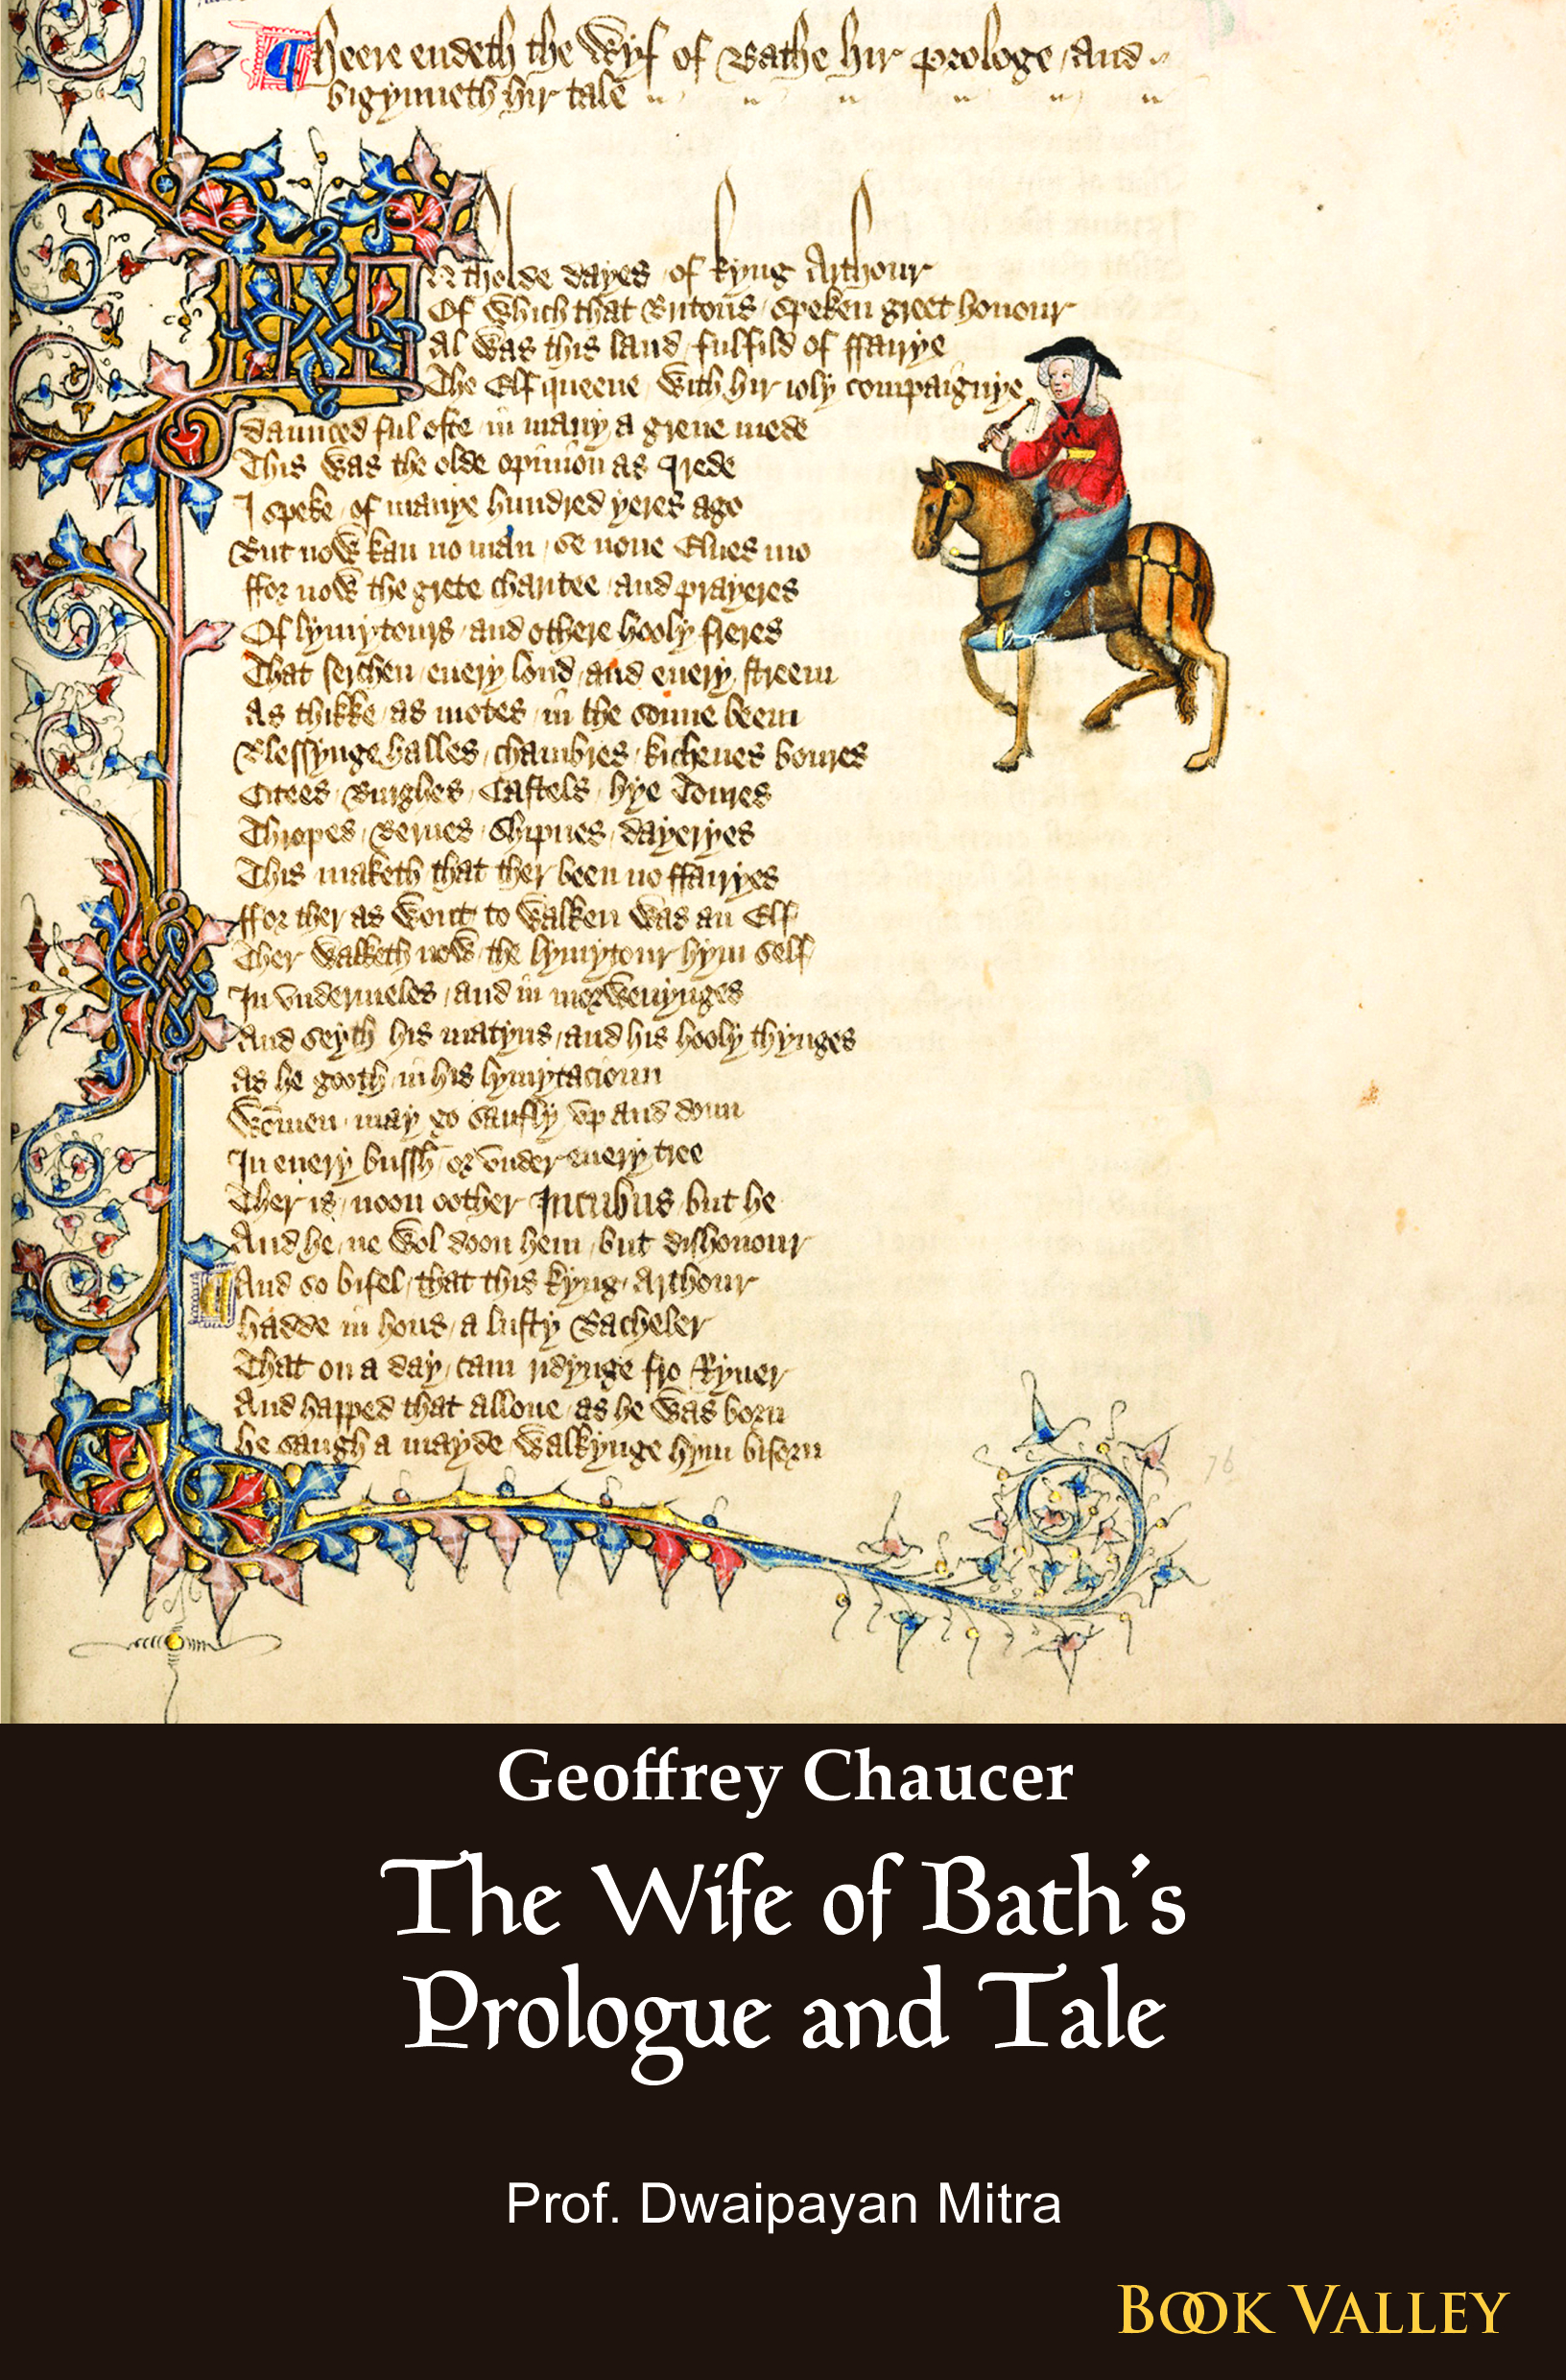 Heere endeth the Wyf of Bathe hir prologe and
bigynneth hir tale
In tholde dayes of kyng Arthour
Of which that Britons speken greet honour
Al was this land fulfild of ffairye
The Elf queene with hir ioly compaignye
daunced ful ofte in many a grene mede
This was the olde opinion as I rede
I speke of manye hundred yeres ago
But now kan no man se none Elues mo
ffor now the grete charitee and prayeres
Of lymytours and othere hooly freres
That serchen euery lond and euery streem
As thikke as motes in the sonne beem
Blessynge halles chambres kichenes boures
Citees Burghes Castels hye Toures
Thropes Bernes Shipnes dayeryes
This maketh that ther been no ffairyes
ffor ther as wont to walken was an Elf
Ther walketh now the lymytour hym self
In vndermeles and in morwenynges
And seyth his matyns and his hooly thynges
As he gooth in his lymytacioun
Wommen may go saufly vp and doun
In euery bussh or vnder euery tree
Ther is noon oother Incubus but he
And he ne wol doon hem but dishonour
And so bifel that this kyng Arthour
hadde in hous a lusty Bacheler
That on a day cam ridynge fro Ryuer
And happed that allone as he was born
he saugh a mayde walkynge hym biforn
76
Geoffrey Chaucer
The Wife of Bath's
Prologue and Tale
Prof. Dwaipayan Mitra
BOOK VALLEY